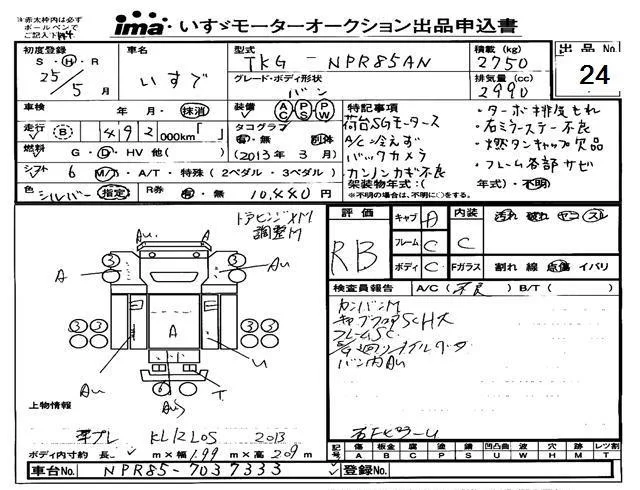 ※赤太枠内は必ず
ボールペンで
ご記入下さい
ima いすゞモーターオークション出品申込書
出品No.
24
初度登録
S・H・R
25/5月
車名
いすゞ
型式
TKG-NPR85AN
グレード・ボディ形状
バン
積載(kg)
2750
排気量(cc)
2990
車検 年・月・抹消
装備 AC PS PW
走行 B 492,000km「 」
タコグラフ
有・無 別体
(2013年3月)
燃料 G・D・HV 他( )
シフト 6 M/T・A/T・特殊(2ペダル・3ペダル)
色 シルバー 指定 R券 有・無 10,440円
特記事項
荷台SGモータース
A/C冷えず
バックカメラ
カンノンカギ不良
・ターボ排気もれ
・右ミラーステー不良
・燃タンキャップ欠品
・フレーム各部サビ
架装物年式:( 年式)・不明
※不明の場合は、不明に○をする。
評価
RB
キャブ A
フレーム C
ボディ C
内装 C
汚れ 破れ ヤニ スレ
Fガラス 割れ 線 点傷 イバリ
検査員報告 A/C(不良) B/T( )
カンバンM
キャブフロアSCH大
フレームSC
バン内AU
トアヒンジXM
調整M
③ ③
AU
A AU
③③ ③③
A
AU U
⑥ T
上物情報
KL12L05 2013
ボディ内寸約 長 m×幅 1.99 m×高 2.09 m
傷 板金 腐 塗 錆 凹凸曲 波 穴 跡 レツ割
A B C P S U W H M T
車台No. NPR85-7037333
登録No.